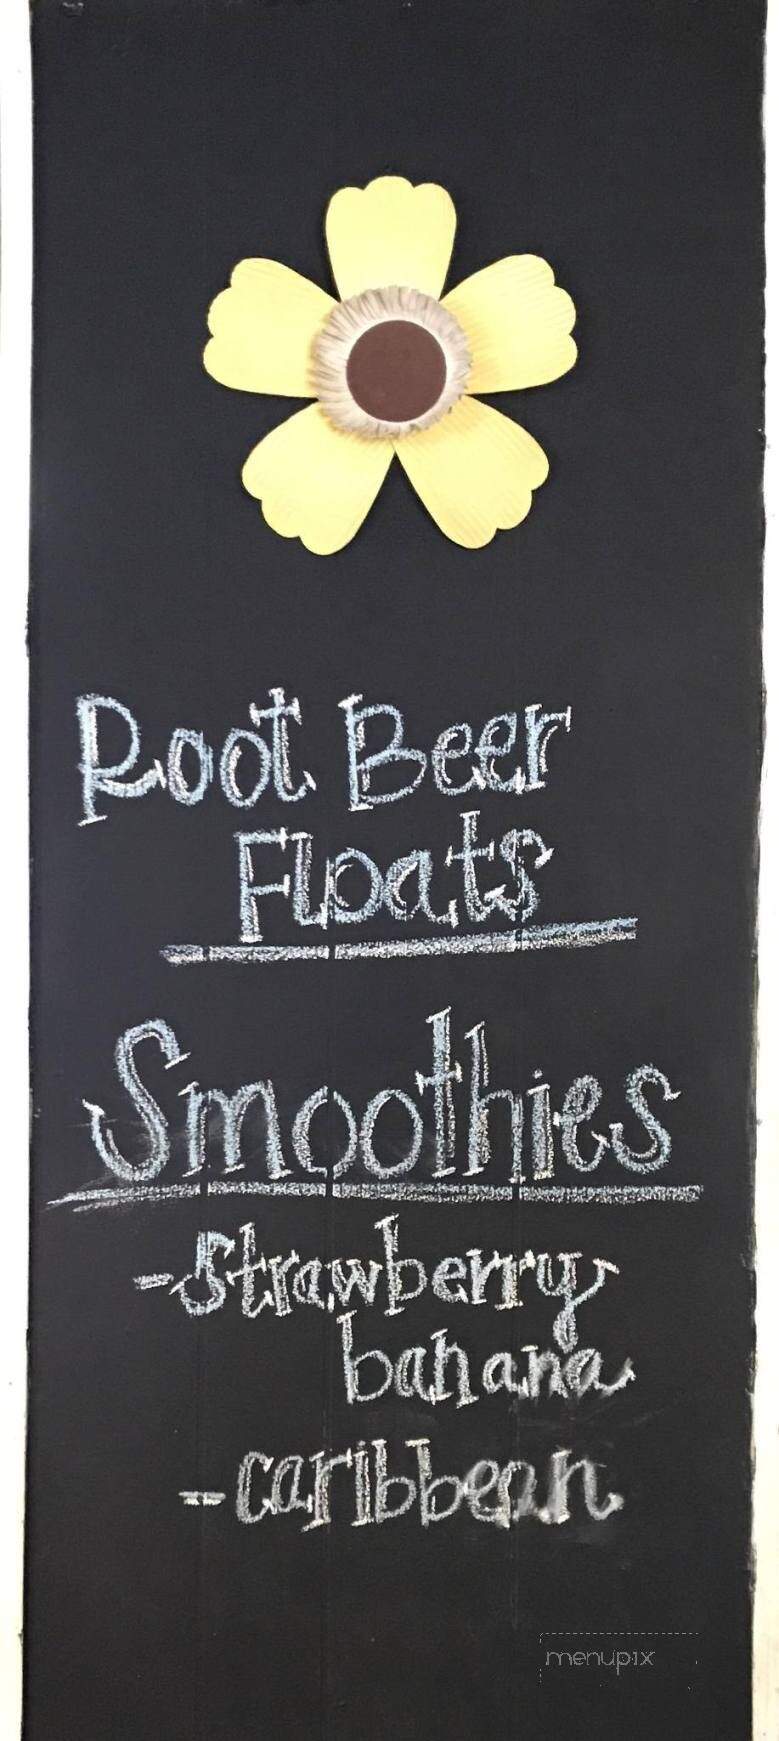 Root Beer
Floats
Smoothies
-Strawberry
banana
-caribbean
menupix